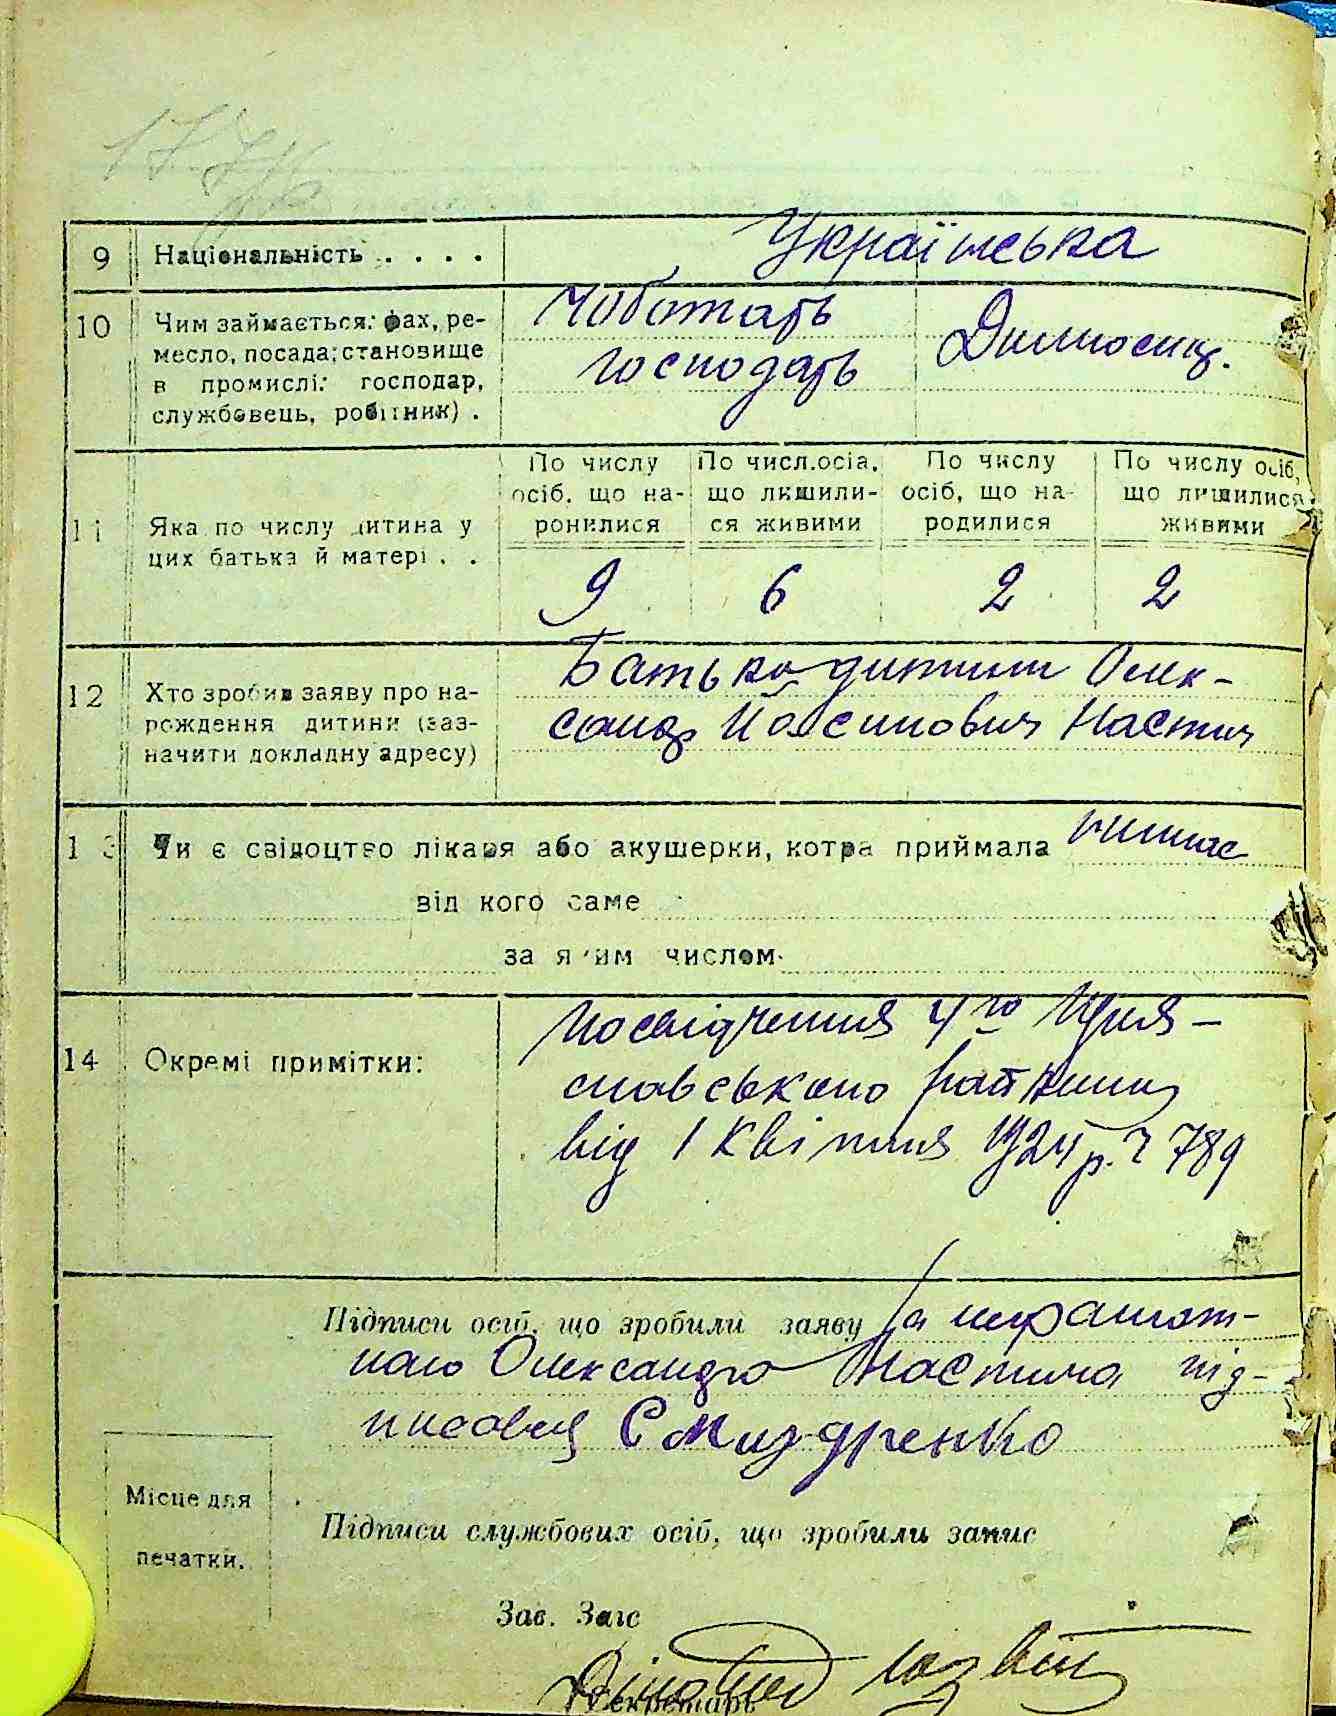 9 Національність . . . . Українська
10 Чим займається: фах, ре-
месло, посада; становище
в промислі: господар,
службовець, робітник) .
Чоботарь
господарь
Домносиц.
11 Яка по числу дитина у
цих батька й матері . .
По числу
осіб, що на-
ронилися
По числ.осіа,
що лишили-
ся живими
По числу
осіб, що на-
родилися
По числу осіб,
що лишилися
живими
9 6 2 2
12 Хто зробив заяву про на-
рождення дитини (заз-
начити докладну адресу)
Батько дитини Олек-
сандр Йосипович Настич
13 Чи є свідоцтво лікаря або акушерки, котра приймала немає
від кого саме
за яким числом
14 Окремі примітки:
Посвідчення 4го
від 1 Квітня 1924 р. 789
Підписи осіб, що зробили заяву За неграмот-
ного Олександра Настича під-
писався
Місце для
печатки.
Підписи службових осіб, що зробили запис
Зав. Загс
Секретарь